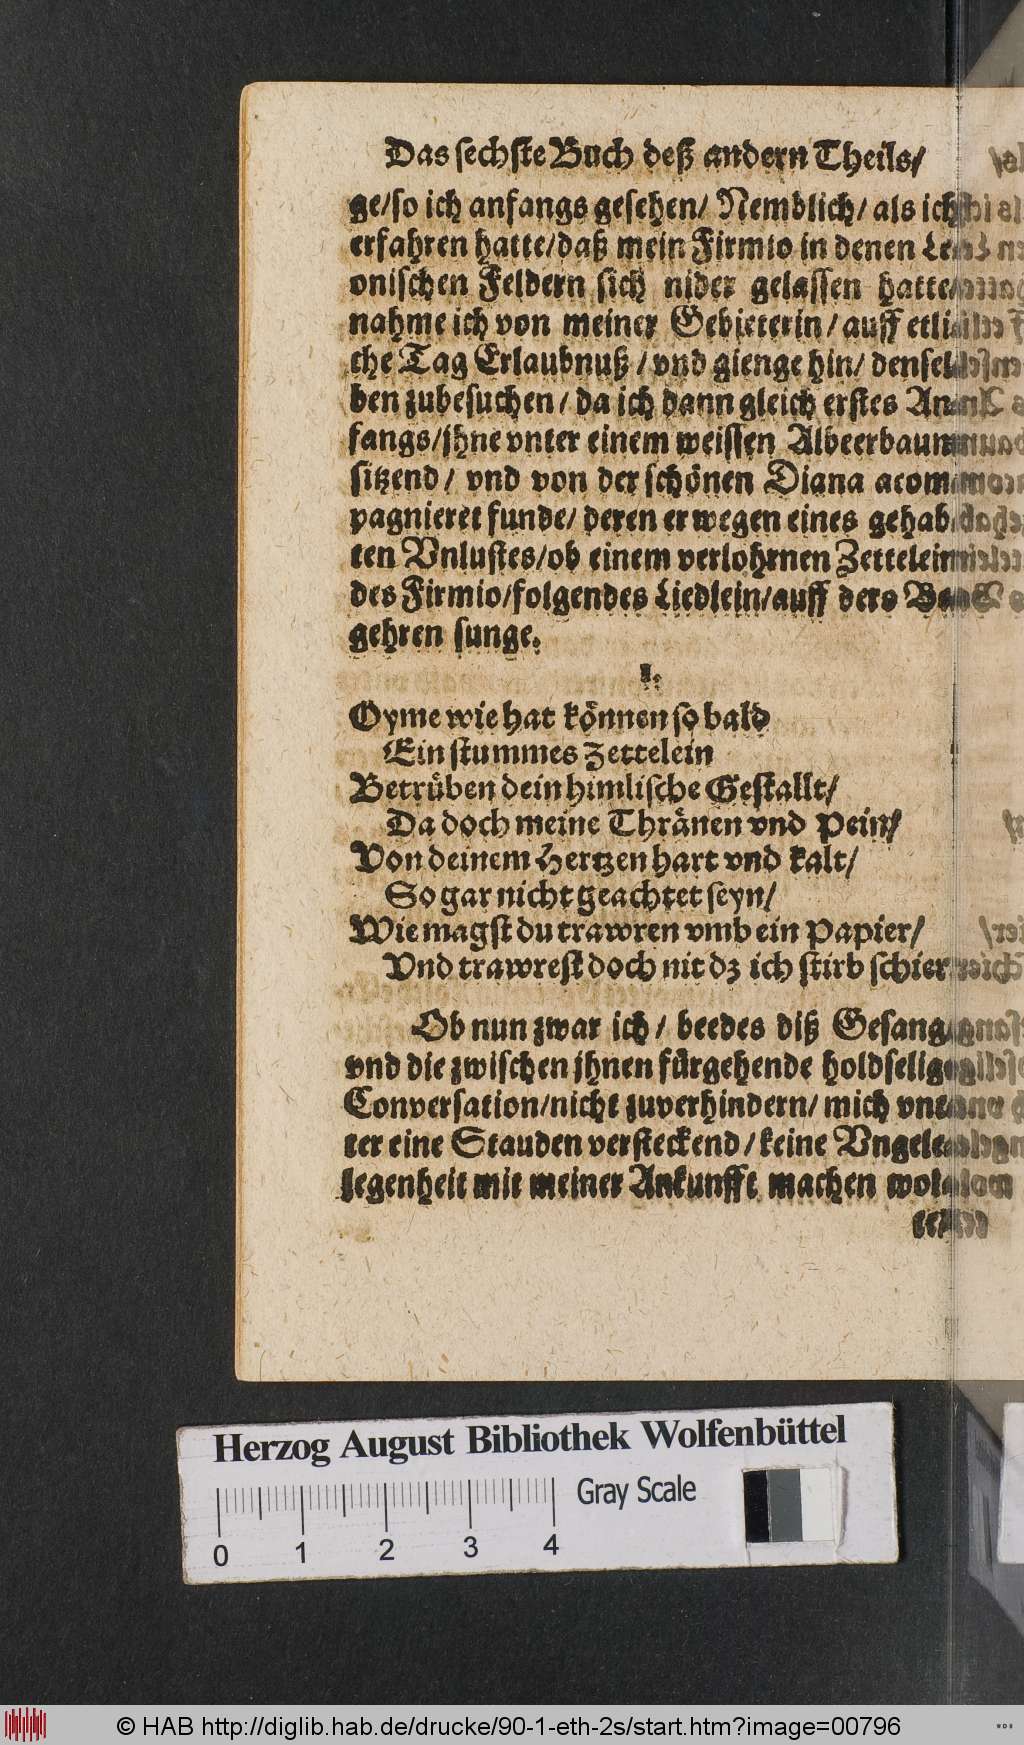 Das sechste Buch deß andern Theils/
ge/so ich anfangs gesehen/ Nemblich/ als ich
erfahren hatte/daß mein Firmio in denen Le-
onischen Feldern sich nider gelassen hatte/
nahme ich von meiner Gebieterin/ auff etli-
che Tag Erlaubnuß/ vnd gienge hin/ densel-
ben zubesuchen/ da ich dann gleich erstes An-
fangs/jhne vnter einem weissen Albeerbaum
sitzend/ vnd von der schönen Diana acom-
pagnieret funde/ deren er wegen eines gehab-
ten Vnlustes/ob einem verlohrnen Zettelein
des Firmio/folgendes Liedlein/auff ders Be-
gehren sunge.
1.
Oyme wie hat können so bald
Ein stummes Zettelein
Betrüben dein himlische Gestallt/
Da doch meine Thränen vnd Pein/
Von deinem Hertzen hart vnd kalt/
So gar nicht geachtet seyn/
Wie magst du trawren vmb ein Papier/
Vnd trawrest doch nit dz ich stirb schier
Ob nun zwar ich/ beedes diß Gesang/
vnd die zwischen jhnen fürgehende holdselige
Conversation/nicht zuverhindern/ mich vn-
ter eine Stauden versteckend/keine Vngele-
legenheit mit meiner Ankunfft machen wol-
Herzog August Bibliothek Wolfenbüttel
Gray Scale
0 1 2 3 4
© HAB http://diglib.hab.de/drucke/90-1-eth-2s/start.htm?image=00796